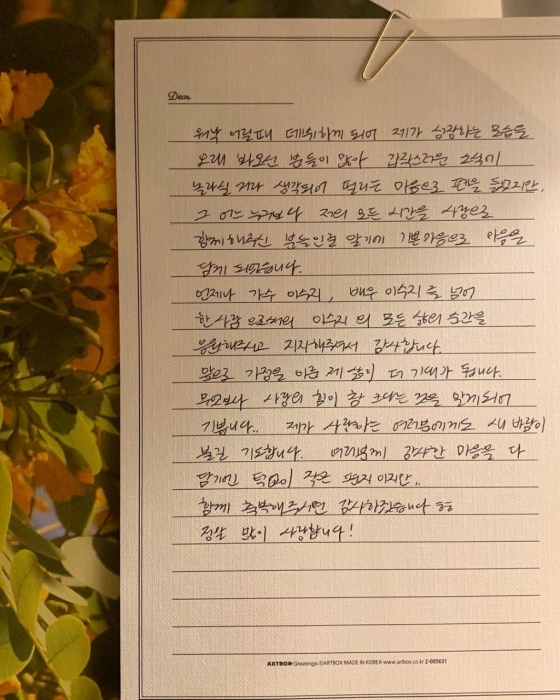 Dear
워낙 어릴때 데뷔하게 되어 제가 성장하는 모습을
오래 봐오신 분들이 많아 갑작스러운 소식에
놀라실 거라 생각되어 떨리는 마음으로 펜을 들었지만,
그 어느 누구보다 저의 모든 시간을 사랑으로
함께해주신 분들인걸 알기에 기쁜마음으로 마음을
담게 되었습니다.
언제나 가수 이수지, 배우 이수지 를 넘어
한 사람 으로써의 이수지 의 모든 삶의 순간을
응원해주시고 지지해주셔서 감사합니다.
앞으로 가정을 이룬 제 삶이 더 기대가 됩니다.
무엇보다 사랑의 힘이 참 크다는 것을 알게되어
기쁩니다.. 제가 사랑하는 여러분에게도 새 바람이
불길 기도합니다. 여러분께 감사한 마음을 다
담기엔 턱없이 작은 편지 이지만..
함께 축복해주시면 감사하겠습니다 ㅎㅎ
정말 많이 사랑합니다!
ARTBOX Greetings ©ARTBOX MADE IN KOREA www.artbox.co.kr 2-005631